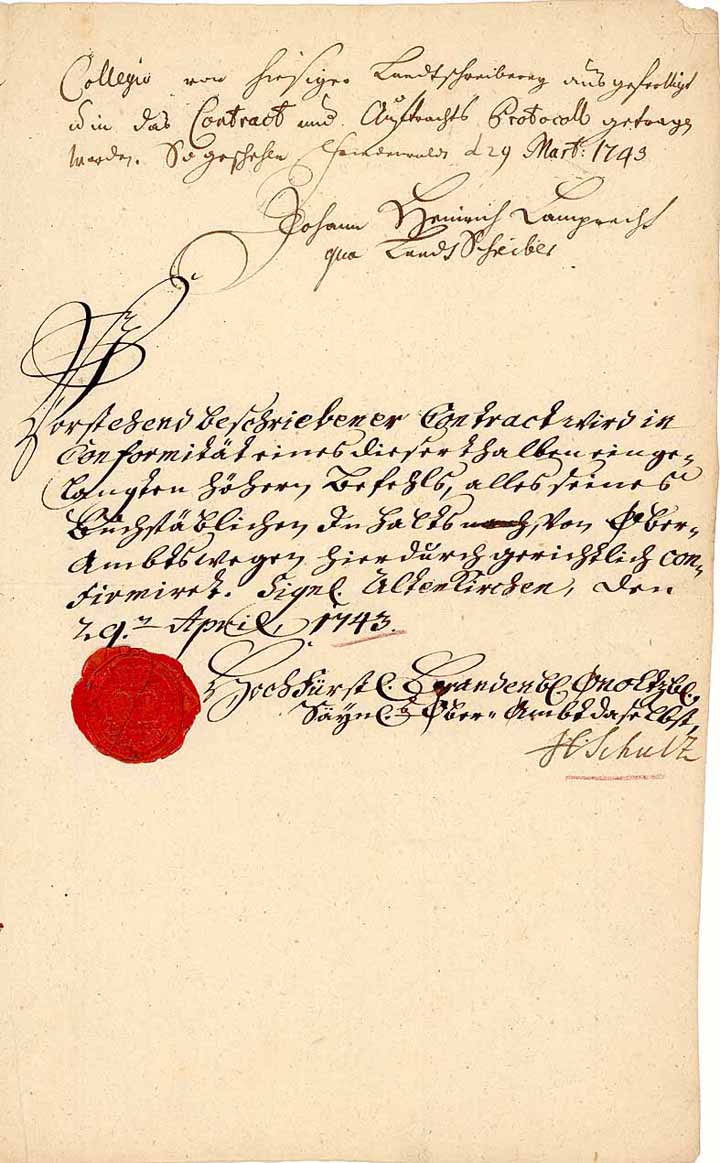 Collegio von hiesiger Landtschreiberey ausgefertigt
und in das Contract und Aufftrachts Protocoll getragen
worden. So geschehen Freudenwaldt d 29 Mart: 1743
Johann Heinrich Lamprecht
qua LandtSchreiber
Vorstehend beschriebener Contract wird in
Conformität eines dieserthalben einge-
langten höhern Befehls, alles seines
Buchstäblichen Inhalts von Ober-
Ambtswegen hierdurch gerichtlich con-
firmiret. Signl. Altenkirchen, den
29.n April, 1743.
Hochfürstl. Brandenbl. Onoltzbl.
Saynl. Ober-Ambt daselbst,
Schultz